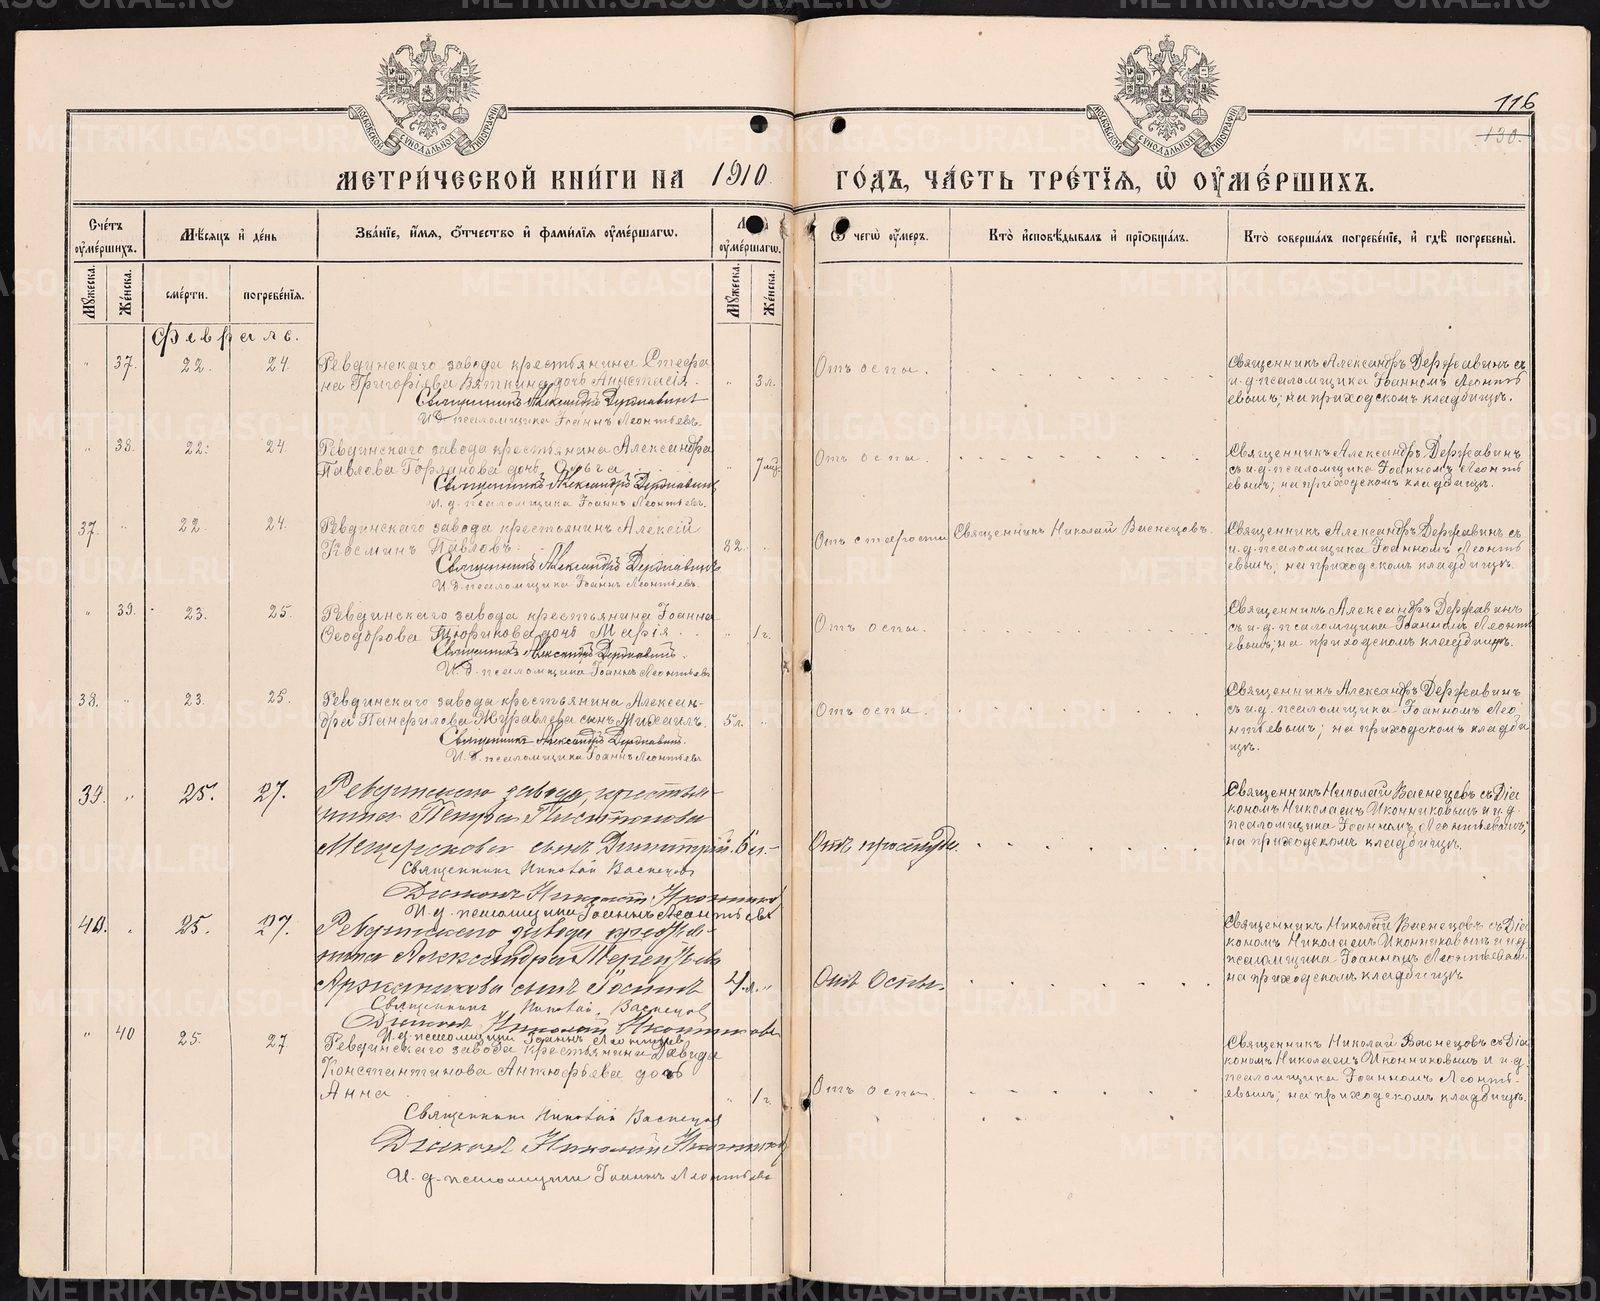 116
130.
МОСКОВСКОЙ СѴНОДАЛЬНОЙ ТИПОГРАФІИ
МОСКОВСКОЙ СѴНОДАЛЬНОЙ ТИПОГРАФІИ
МЕТРИ́ЧЕСКОЙ КНИ́ГИ НА 1910 ГО́ДЪ, ЧА́СТЬ ТРЕ́ТІѦ, Ѡ҆ ОУ҆МЕ́РШИХЪ.
Сче́тъ оу҆ме́ршихъ.
Мѣ́сѧцъ и҆ де́нь
Зва́нїе, и҆́мѧ, ѻ҆́тчество и҆ фами́лїѧ оу҆ме́ршагѡ.
оу҆ме́ршагѡ.
Ѿ чегѡ̀ оу҆́меръ.
Кто̀ и҆сповѣ́дывалъ и҆ прїѡбща́лъ.
Кто̀ соверша́лъ погребе́нїе, и҆ гдѣ̀ погребены̀.
Мꙋ́жеска.
Же́нска.
сме́рти.
погребе́нїѧ.
Мꙋ́жеска.
Же́нска.
Февраль.
" 37. 22. 24. Ревдинскаго завода крестьянина Стефа
на Григорьева Вяткина дочь Анастасія. " 3 л.
Священникъ Александръ Державинъ
И. д. псаломщика Іоаннъ Леонтьевъ.
Отъ оспы.
Священникъ Александръ Державинъ съ
и. д. псаломщика Іоанномъ Леонть
евымъ; на приходскомъ кладбищѣ.
" 38. 22. 24. Ревдинскаго завода крестьянина Александра
Павлова Горланова дочь Ольга " 7
Священникъ Александръ Державинъ
И. д. псаломщика Іоаннъ Леонтьевъ.
Отъ оспы.
Священникъ Александръ Державинъ
съ и. д. псаломщика Іоанномъ Леонть
евымъ; на приходскомъ кладбищѣ.
37. " 22. 24. Ревдинскаго завода крестьянинъ Алексій
Космин Павловъ. 82. "
Священникъ Александръ Державинъ
И. д. псаломщика Іоаннъ Леонтьевъ.
Отъ старости Священникъ Николай Васнецовъ.
Священникъ Александръ Державинъ съ
и. д. псаломщика Іоанномъ Леонть
евымъ; на приходскомъ кладбищѣ.
" 39. 23. 25. Ревдинскаго завода крестьянина Іоанна
Ѳеодорова Тюрикова дочь Марія. " 1 г.
Священникъ Александръ Державинъ.
И. д. псаломщика Іоаннъ Леонтьевъ
Отъ оспы.
Священникъ Александръ Державинъ
съ и. д. псаломщика Іоанномъ Леонть
евымъ; на приходскомъ кладбищѣ.
38. " 23. 25. Ревдинскаго завода крестьянина Алексан-
дра Панфилова Журавлева сынъ Михаилъ. 5 л. "
Священникъ Александръ Державинъ.
И. д. псаломщика Іоаннъ Леонтьевъ
Отъ оспы.
Священникъ Александръ Державинъ
съ и. д. псаломщика Іоанномъ Лео
нтьевымъ; на приходскомъ кладби
щѣ.
39. " 25. 27. Ревдинскаго завода, крестья-
нина Петра
Мещерякова сынъ Димитрій. 6
Священникъ Николай Васнецовъ
Діаконъ Николай Иконниковъ
И. д. псаломщика Іоаннъ Леонтьевъ
Отъ простуды.
Священникъ Николай Васнецовъ съ Діа
кономъ Николаемъ Иконниковымъ и и. д.
псаломщика Іоанномъ Леонтьевымъ;
на приходскомъ кладбищѣ.
40. " 25. 27. Ревдинскаго завода крестья-
нина Александра Терентьева
сынъ 4. л. "
Священникъ Николай Васнецовъ
Діаконъ Николай Иконниковъ
И. д. псаломщика Іоаннъ Леонтьевъ
Отъ Оспы.
Священникъ Николай Васнецовъ съ Діа
кономъ Николаемъ Иконниковымъ и и. д.
псаломщика Іоанномъ Леонтьевымъ
на приходскомъ кладбищѣ
" 40 25. 27 Ревдинскаго завода крестьянина Давида
Константинова Антюфьева дочь
Анна " 1 г.
Священникъ Николай Васнецовъ
Діаконъ Николай Иконниковъ
И. д. псаломщика Іоаннъ Леонтьевъ
Отъ оспы.
Священникъ Николай Васнецовъ съ Діа
кономъ Николаемъ Иконниковымъ и и. д.
псаломщика Іоанномъ Леонть-
евымъ; на приходскомъ кладбищѣ.
METRIKI.GASO-URAL.RU